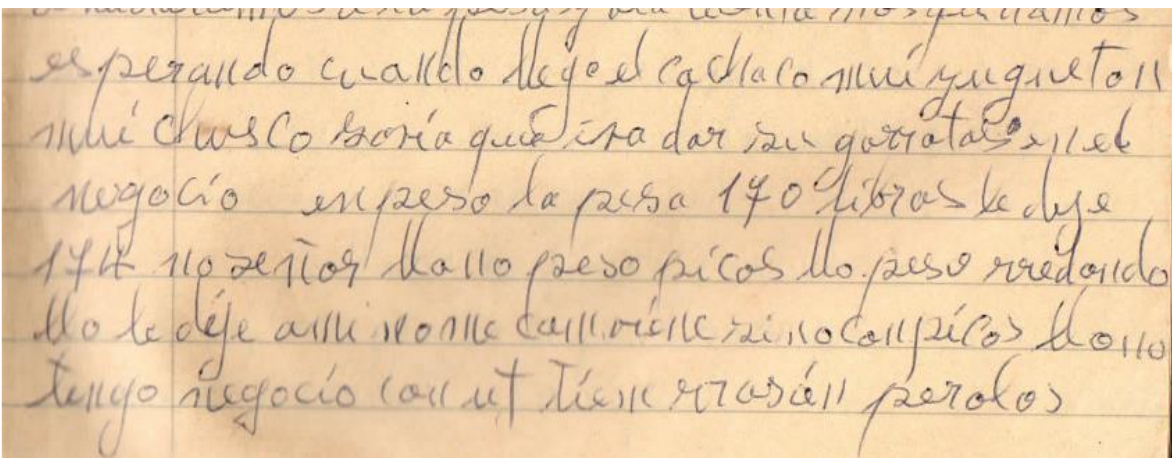 esperando cuando llego el cachaco mui yugueton
mui chusco sonría que ira dar su garrotas en el
negocio enpeso la pesa 170 libras le dije
174 no señor llo no peso picos llo peso rredondo
llo le dije a mi no me comviene sino con picos llo no
tengo negocio con ut tiene rrasón perolos